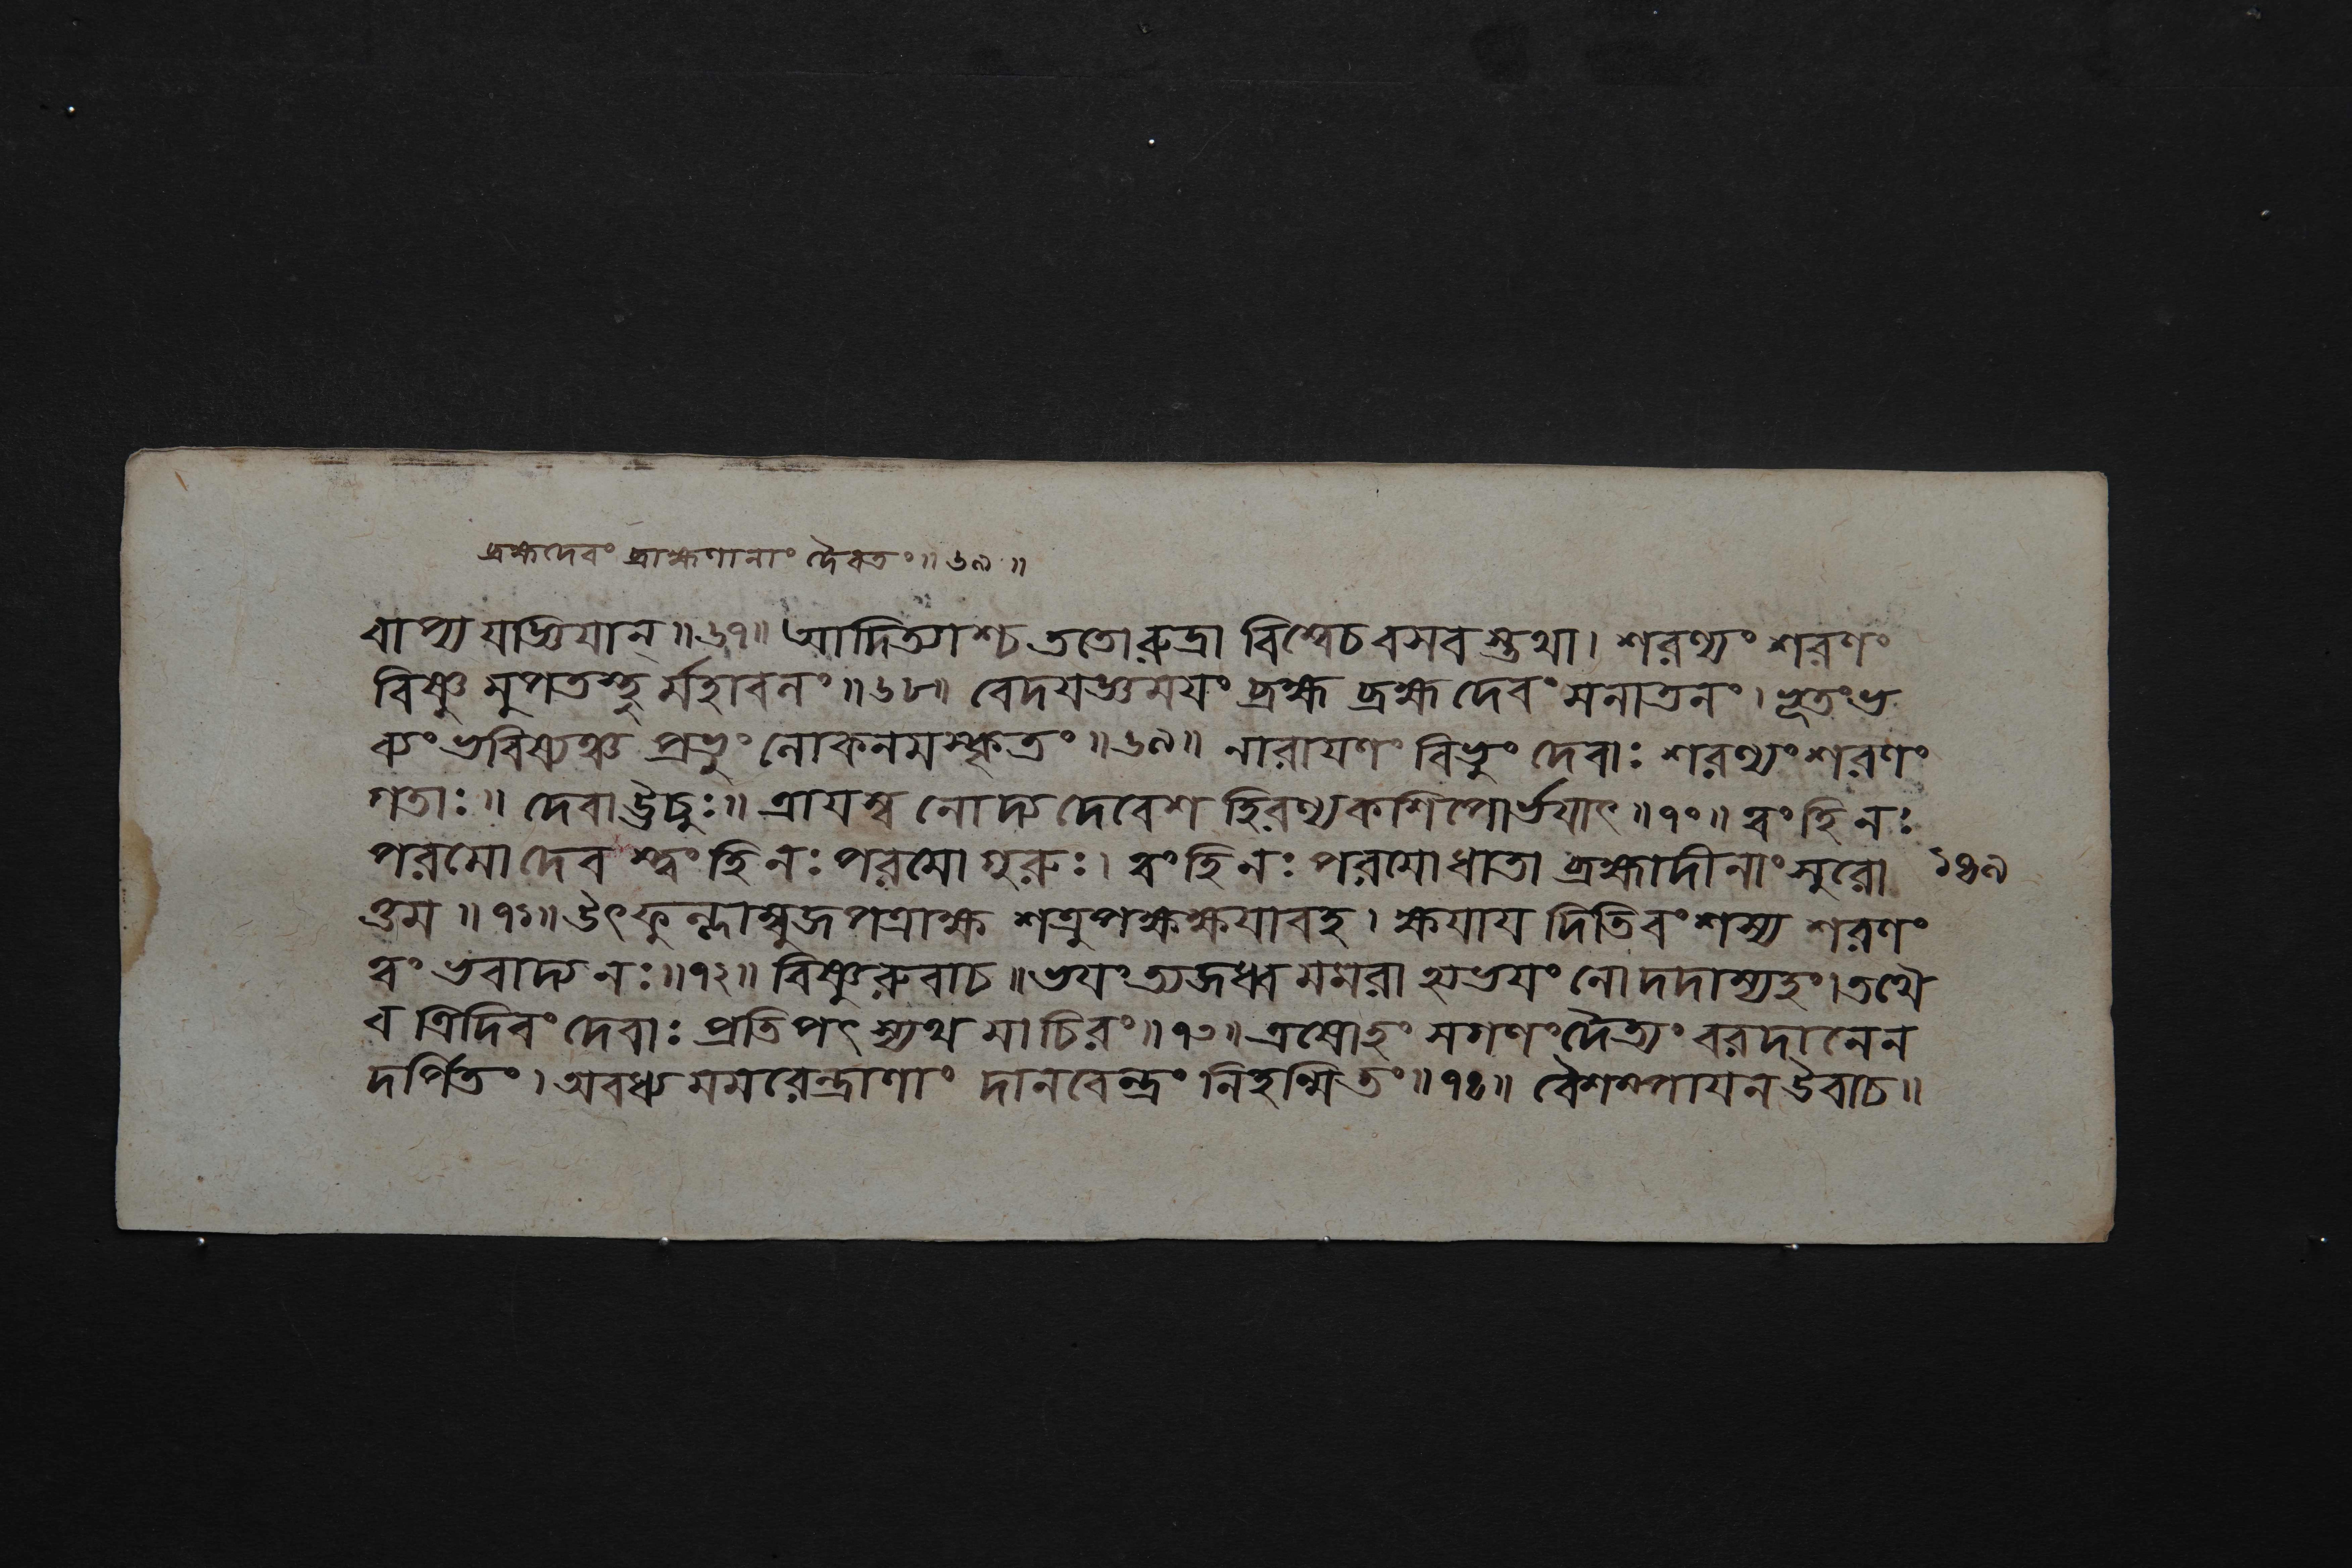 ব্রহ্মদেবং ব্রাহ্মণানাং দৈবতং॥৬৯॥
বাপ্য যাজ্ঞিযান্॥৬৭॥ আদিত্যাশ্চ ততোরুদ্রা বিশ্বেচ বসব স্তথা। শরণ্যং শরণং
বিষ্ণু মুপতস্থু র্মহাবলং॥৬৮॥ বেদযজ্ঞমযং ব্রহ্ম ব্রহ্ম দেবং সনাতনং। ভূতংভ
ব্যং ভবিষ্যঞ্চ প্রভুং লোকনমস্কৃতং॥৬৯॥ নারাযণং বিভুং দেবাঃ শরণ্যং শরণং
গতাঃ॥ দেবা ঊচুঃ॥ ত্রাযস্ব নোদ্য দেবেশ হিরণ্যকশিপোর্ভযাৎ॥৭০॥ ত্বং হি নঃ
পরমো দেব স্ত্বং হি নঃ পরমো গুরুঃ। ত্বং হি নঃ পরমোধাতা ব্রহ্মাদীনাং সুরো ১৪৯
ত্তম॥৭১॥ উৎফুল্লাম্বুজপত্রাক্ষ শত্রুপক্ষক্ষযাবহ। ক্ষযায দিতিবংশস্য শরণং
ত্বং ভবাদ্য নঃ॥৭২॥ বিষ্ণুরুবাচ॥ ভযং ত্যজধ্ব মমরা হ্যভযং বো দদাম্যহং। তথৈ
ব ত্রিদিবং দেবাঃ প্রতিপৎস্যথ মা চিরং॥৭৩॥ এষোহং সগণং দৈত্যং বরদানেন
দর্পিতং। অবধ্য মমরেন্দ্রাণাং দানবেন্দ্রং নিহন্মি তং॥৭৪॥ বৈশম্পাযন উবাচ॥